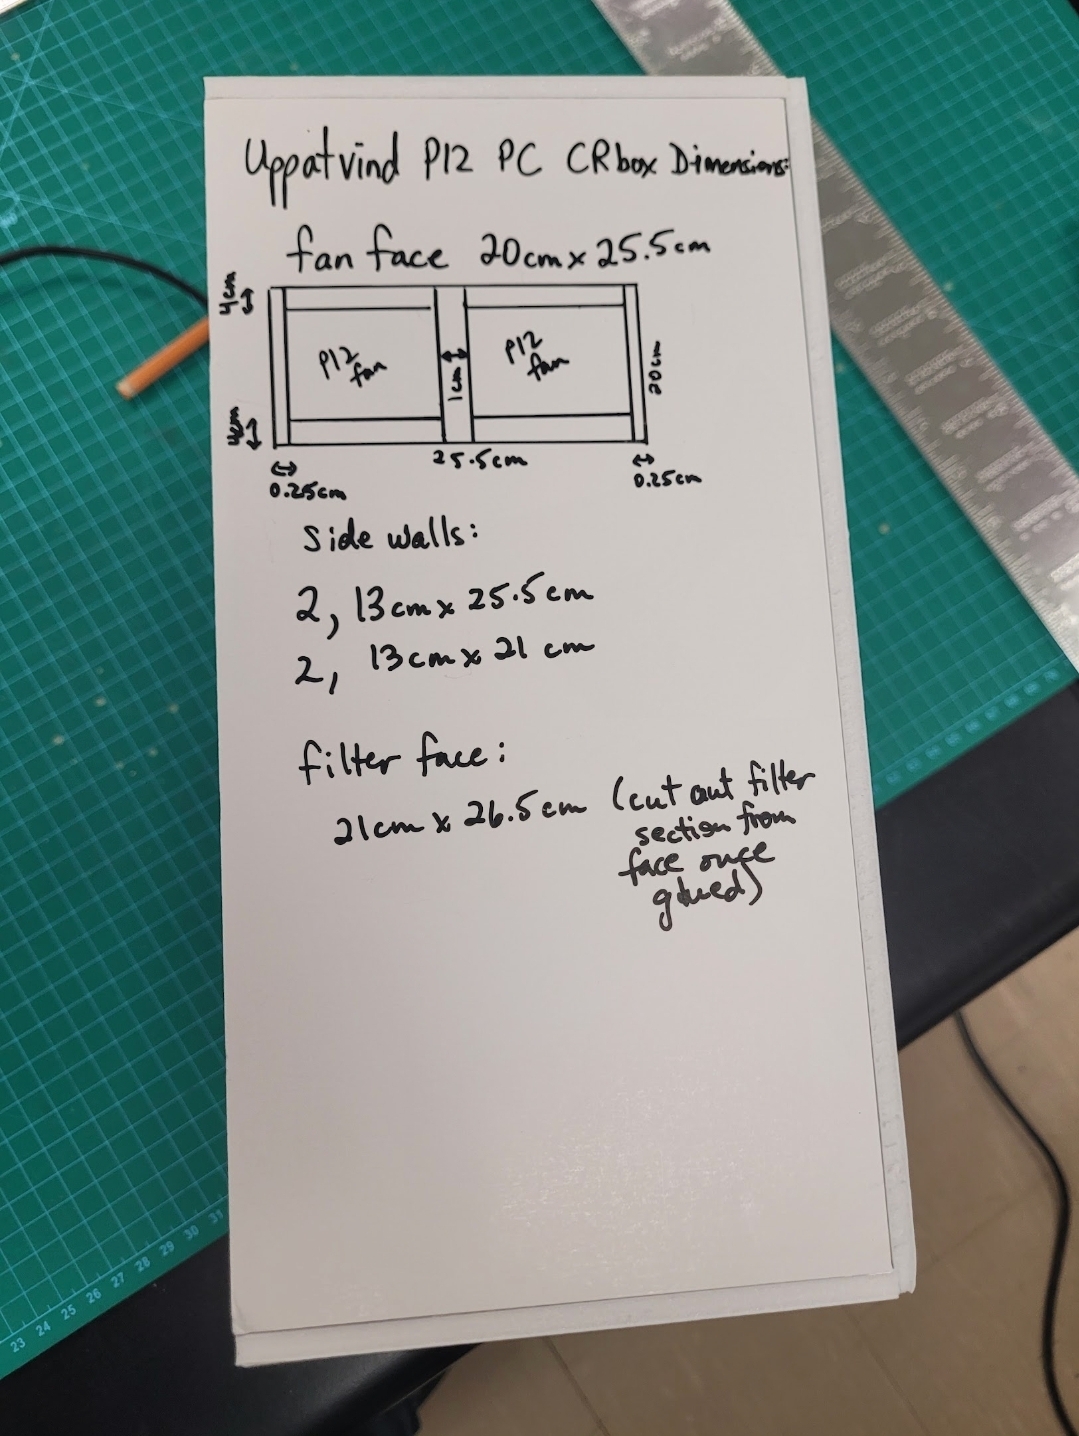 Uppatvind P12 PC CRbox Dimensions:
fan face 20cm x 25.5cm
4cm
P12
fan
1cm
P12
fan
20cm
4cm
25.5cm
0.25cm
0.25cm
Side walls:
2, 13cm x 25.5cm
2, 13cm x 21 cm
filter face:
21cm x 26.5cm (cut out filter
section from
face once
glued)
23 24 25 26 27 28 29 30 31